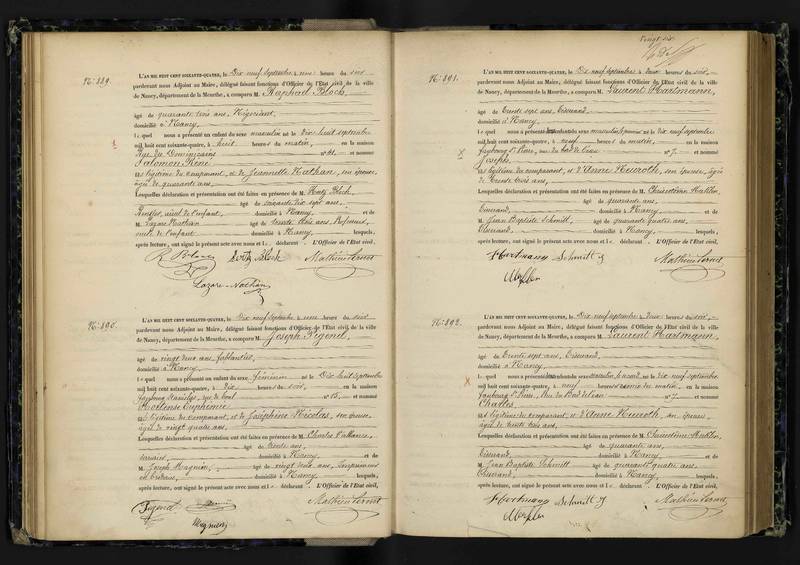 No. 889.
L'AN MIL HUIT CENT SOIXANTE-QUATRE, le Dix neuf Septembre à une heure du soir
pardevant nous Adjoint au Maire, délégué faisant fonctions d'Officier de l'Etat civil de la ville
de Nancy, département de la Meurthe, a comparu M. Raphaël Bloch,
âgé de quarante trois ans, Négociant,
domicilié à Nancy,
lequel nous a présenté un enfant du sexe masculin né le Dix huit Septembre
mil huit cent soixante-quatre, à huit heures du matin, en la maison
Rue des Dominicains n° 41. et nommé
Salomon René,
fils légitime du comparant, et de Jeannette Nathan, son épouse,
âgée de quarante ans.
Lesquelles déclaration et présentation ont été faites en présence de M. Bloch,
âgé de soixante dix sept ans,
Rentier, aïeul de l'enfant, domicilié à Nancy, et de
M. Lazare Nathan âgé de trente trois ans,
oncle de l'enfant domicilié à Nancy, lesquels,
après lecture, ont signé le présent acte avec nous et le déclarant. L'Officier de l'Etat civil,
R Bloch Bloch
Lazare Nathan
No. 890.
L'AN MIL HUIT CENT SOIXANTE-QUATRE, le Dix neuf Septembre à une heure du soir
pardevant nous Adjoint au Maire, délégué faisant fonctions d'Officier de l'Etat civil de la ville
de Nancy, département de la Meurthe, a comparu M. Joseph Pigond,
âgé de vingt deux ans, ferblantier,
domicilié à Nancy,
lequel nous a présenté un enfant du sexe féminin né le Dix huit Septembre
mil huit cent soixante-quatre, à Dix heures du soir, en la maison
faubourg Stanislas, n° 15. et nommé
Hortense Euphémie
fille légitime du comparant, et de Joséphine Nicolas, son épouse,
âgée de vingt quatre ans,
Lesquelles déclaration et présentation ont été faites en présence de M. Charles
âgé de trente ans,
domicilié à Nancy et de
M. Joseph Magnien, âgé de vingt deux ans,
domicilié à Nancy, lesquels,
après lecture, ont signé le présent acte avec nous et le déclarant. L'Officier de l'Etat civil,
Pigond
Magnien
Vingt six
No. 891.
L'AN MIL HUIT CENT SOIXANTE-QUATRE, le Dix neuf Septembre à deux heures du soir,
pardevant nous Adjoint au Maire, délégué faisant fonctions d'Officier de l'Etat civil de la ville
de Nancy, département de la Meurthe, a comparu M. Laurent Hartmann,
âgé de trente sept ans, Tisserand,
domicilié à Nancy,
lequel nous a présenté enfants du sexe masculin, le premier né le Dix neuf Septembre
mil huit cent soixante-quatre, à neuf heures du matin, en la maison
faubourg St Pierre, rue du bord de l'eau n° 7. et nommé
Joseph,
fils légitime du comparant, et d'Anne Heuroth, son épouse, âgée
de trente trois ans,
Lesquelles déclaration et présentation ont été faites en présence de M. Chrisostôme
âgé de quarante ans,
Tisserand, domicilié à Nancy, et de
M. Jean Baptiste Schmitt, âgé de quarante quatre ans,
Tisserand, domicilié à Nancy, lesquels,
après lecture, ont signé le présent acte avec nous et le déclarant. L'Officier de l'Etat civil,
Hartmann Schmitt J
No. 892.
L'AN MIL HUIT CENT SOIXANTE-QUATRE, le Dix neuf Septembre à deux heures du soir,
pardevant nous Adjoint au Maire, délégué faisant fonctions d'Officier de l'Etat civil de la ville
de Nancy, département de la Meurthe, a comparu M. Laurent Hartmann,
âgé de trente sept ans, Tisserand,
domicilié à Nancy
lequel nous a présenté enfants du sexe masculin, le second né le dix neuf Septembre
mil huit cent soixante-quatre, à neuf heures demie du matin, en la maison
faubourg St Pierre, Rue du Bord de l'eau n° 7. et nommé
Charles,
fils légitime du comparant, et d'Anne Heuroth, son épouse,
âgée de trente trois ans,
Lesquelles déclaration et présentation ont été faites en présence de M. Chrisostôme
âgé de quarante ans,
Tisserand, domicilié à Nancy, et de
M. Jean Baptiste Schmitt âgé de quarante quatre ans,
Tisserand, domicilié à Nancy, lesquels,
après lecture, ont signé le présent acte avec nous et le déclarant. L'Officier de l'Etat civil,
Hartmann Schmitt J